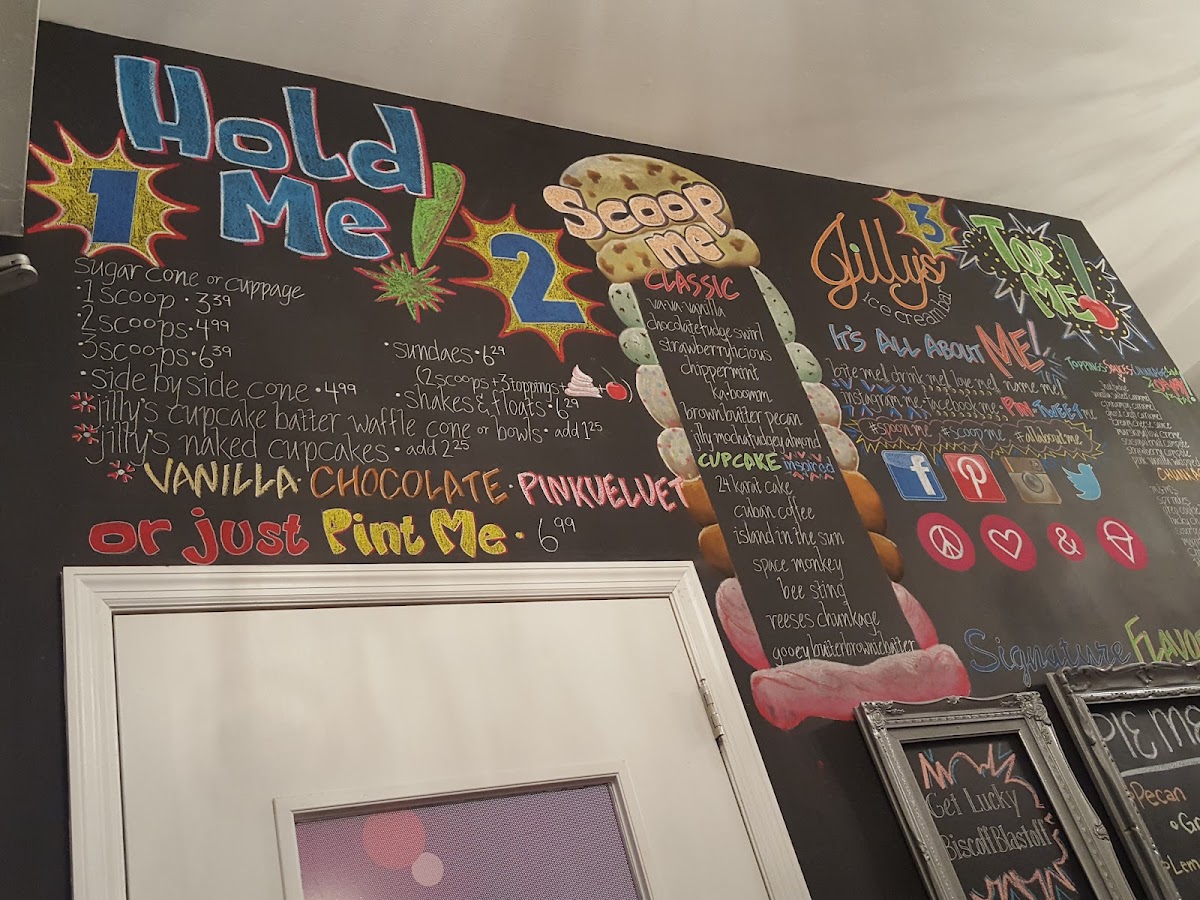 1
Hold
Me!
sugar cone or cuppage
·1 scoop · 3.39
·2 scoops · 4.99
·3 scoops · 6.39
·side by side cone · 4.99
jilly's cupcake batter waffle cone or bowls · add 1.25
jilly's naked cupcakes · add 2.25
VANILLA · CHOCOLATE · PINKVELVET
or just Pint Me · 6.99
·sundaes · 6.29
(2 scoops + 3 toppings +
·shakes & floats · 6.29
2
Scoop
me
CLASSIC
va-va-vanilla
chocolate fudge swirl
strawberrylicious
chippermint
ka-boomm
brown batter pecan
jilly mochafudgey almond
CUPCAKE inspired
24 karat cake
cuban coffee
island in the sun
space monkey
bee sting
reeses chunkage
gooey butterbrowniebatter
Jilly's
ice cream bar
IT'S ALL ABOUT ME!
bite me! drink me! love me! name me!
instagram me · facebook me · PIN · TWEET me
#spoonme #scoopme #allaboutme
f
&
3
TOP
ME!
Signature Flavo
Get Lucky
Biscoff Blastoff
PIE ME
Pecan
Lem